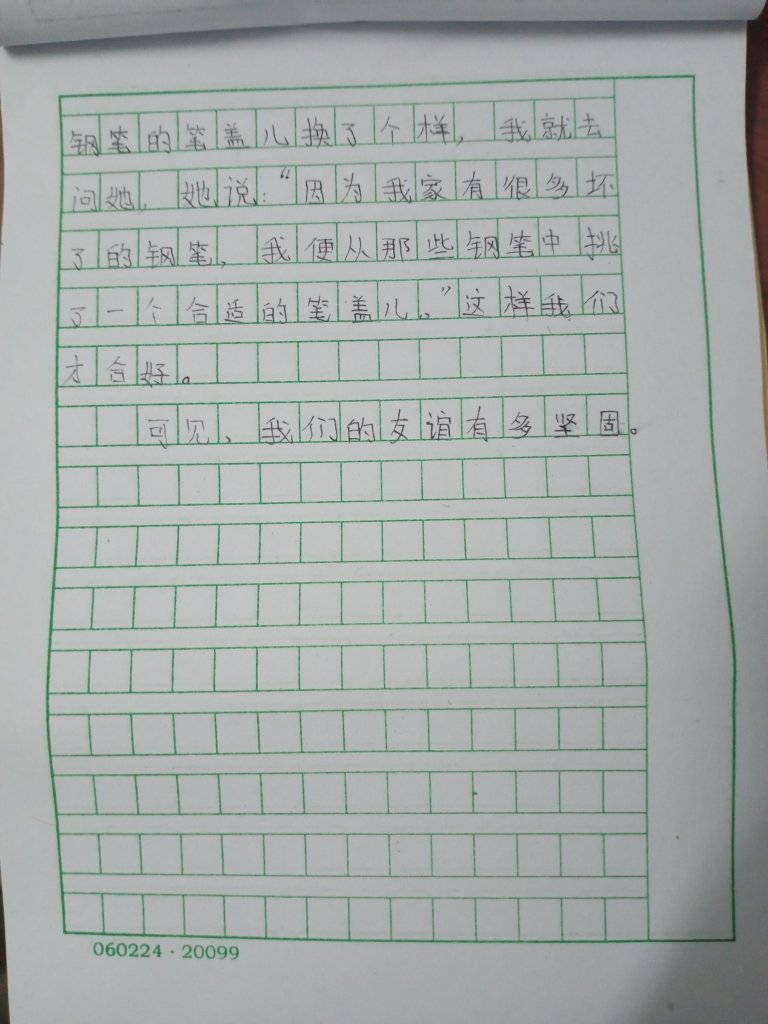 钢笔的笔盖儿换了个样，我就去
问她，她说：“因为我家有很多坏
了的钢笔，我便从那些钢笔中挑
了一个合适的笔盖儿。”这样我们
才合好。
可见，我们的友谊有多坚固。
060224·20099